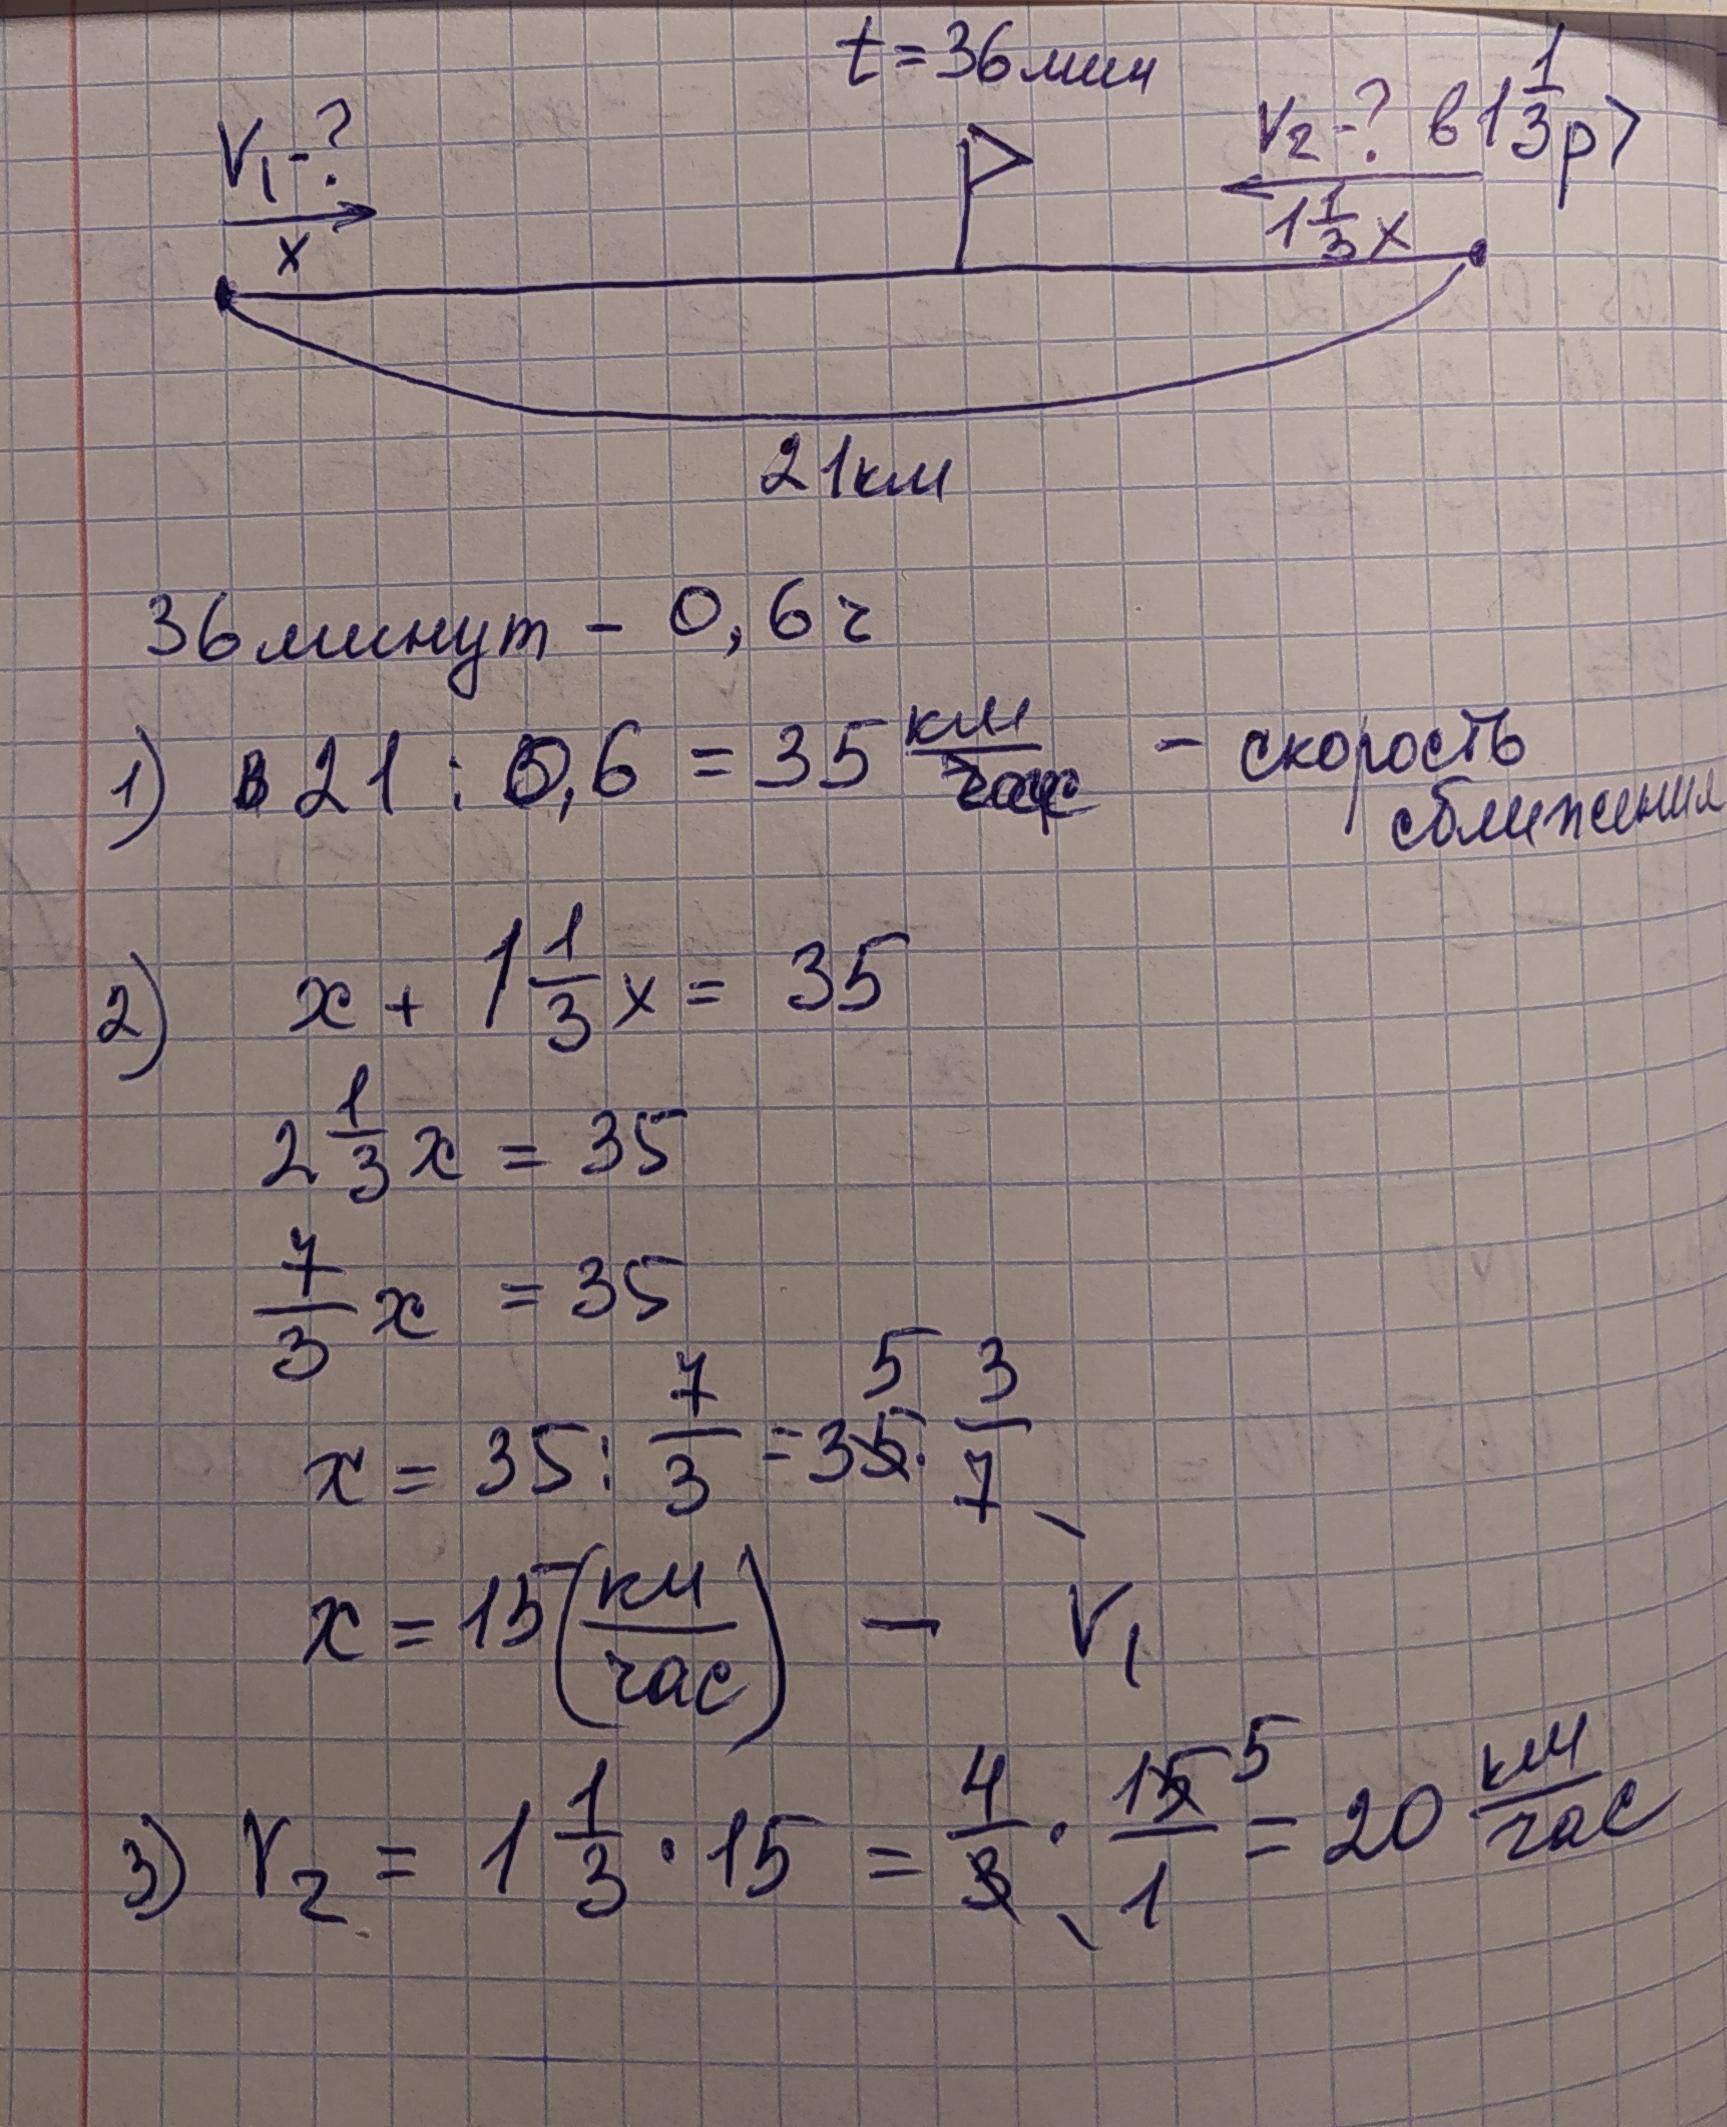 t = 36 мин
V₁ - ?
V₂ - ? в 1 1/3 р >
x
1 1/3 x
21 км
36 минут - 0,6 г
1) в 21 : 0,6 = 35 км/час - скорость
сближения
2) x + 1 1/3 x = 35
2 1/3 x = 35
7/3 x = 35
x = 35 : 7/3 = 35 · 3/7
5
x = 15 (км/час) - V₁
3) V₂ = 1 1/3 · 15 = 4/3 · 15/1 = 20 км/час
5